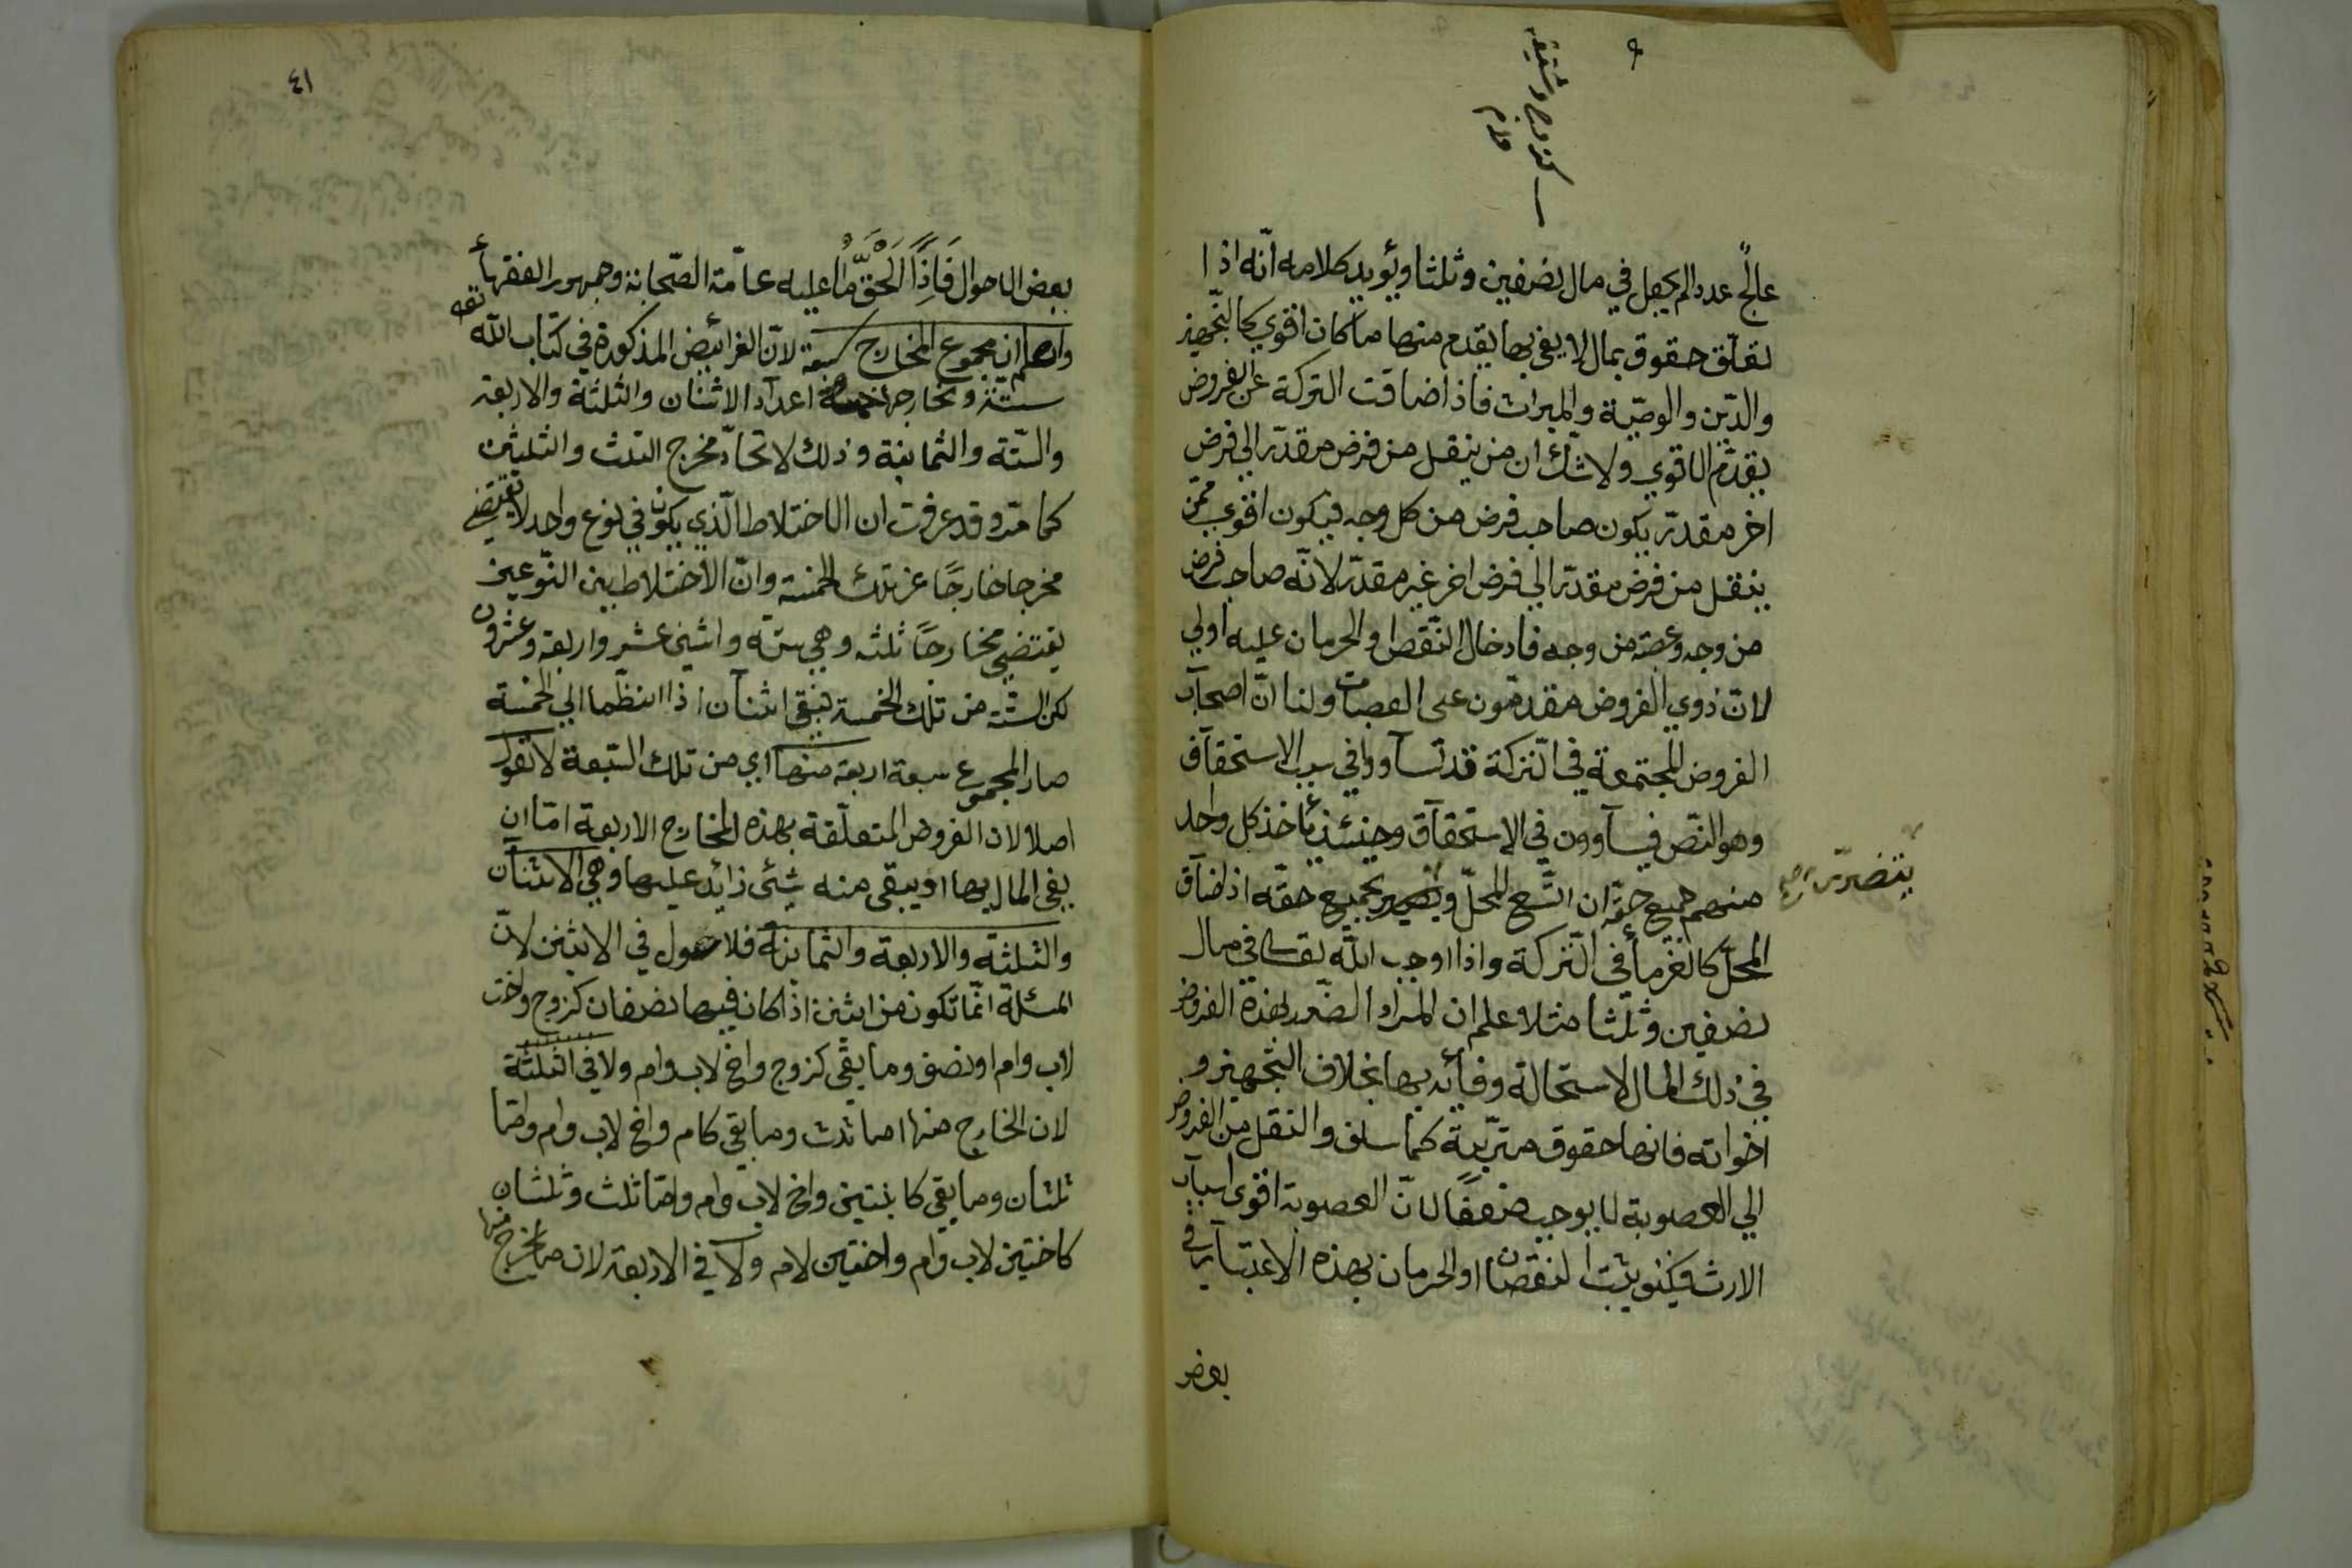 كزوج وشقيقة
وام
عالج عددا لم يجعل في مال نصفين وثلثا ويؤيد كلامه انّه اذا
تعلّق حقوق بمال لا يفي بها يقدم منها ما كان اقوي كالتّجهيز
والدّين والوصيّة والميراث فاذا ضاقت التركة عن الفروض
يقدّم الاقوي ولا شكّ ان من ينقل من فرض مقدّر الي فرض
اخر مقدّر يكون صاحب فرض من كل وجه فيكون اقوي ممّن
ينقل من فرض مقدّر الي فرض اخر غير مقدّر لانّه صاحب فرض
من وجه وعصبة من وجه فادخال النّقص او الحرمان عليه اولي
لانّ ذوي الفروض مقدمّون على العصبات ولنا انّ اصحآب
الفروض المجتمعة في التركة قد تسآووا في سبب الاستحقآق
وهو النّص فيسآوون في الاستحقآق وحينئذ يأخذ كل واحد
منهم جميع حقّه ان اتّسع المحلّ و بجميع حقّه اذا ضآق
يتضرّر
المحلّ كالغرمآء في التركة واذا اوجب اللّه تعالى في مال
نصفين وثلثا مثلا علم ان المراد الضّرب لهذه الفروض
في ذلك المال لاستحالة وفآئه بها بخلاف التّجهيز و
اخواته فانها حقوق مترتّبة كما سلف والنقل من الفروض
الي العصوبة لا يوجب ضعفًا لانّ العصوبة اقوى اسبآب
الارث فكيف يثبت النقصان او الحرمان بهذه الاعتبآر في
بعض
٤١
بعض الاحوال فَاِذًا اَلْحَقُّ مَا عليه عامّة الصّحابة وجمهور الفقهآء
واعلم ان مجموع المخارج سبعة لانّ الفرائيض المذكورة في كتاب اللّه تعه
ستّة ومخارجها خمسة اعدآد الاثنان والثلثة والاربعة
والستّة والثمانية وذلك لاتحادّ مخرج الثلث والثلثين
كما مرّ وقد عرفت ان الاختلاط الّذي يكون في نوع واحد لا يقتضي
مخرجا خارجًا عن تلك الخمسة وانّ الاختلاط بين النّوعين
يقتضي مخارجًا ثلثه وهي ستّه واثني عشر واربعة وعشرون
لكن الستّة من تلك الخمسة فبقي اثنآن اذا انضّما الي الخمسة
صار المجموع سبعة اربعة منها اي من تلك السّبعة لا تعول
اصلا لان الفروض المتعلّقة بهذه المخارج الاربعة امّا ان
يفي المال بها او يبقى منه شيئ زائد عليها وهي الاثنآن
والثلثة والاربعة والثمانية فلا عول في الاثنين لانّ
المسئلة انّما تكون من اثنين اذا كان فيها نصفان كزوج واخت
لاب وام او نصف وما بقي كزوج واخ لاب وام ولا في الثلثة
لان الخارج منها اما ثلث وما بقي كام واخ لاب وام وامّا
ثلثان وما بقي كابنتين واخ لاب وام وامّا ثلث وثلثان
كاختين لاب وام واختين لام ولا في الاربعة لان ما يخرج منها